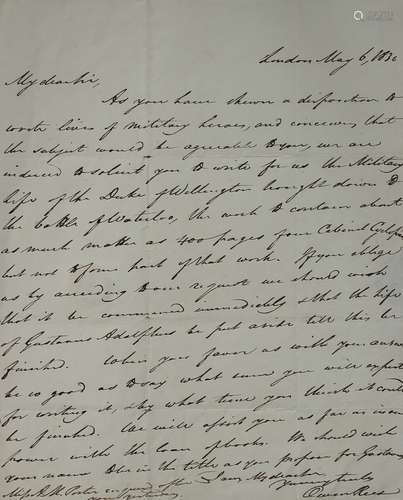 London May 6, 183
My dear sir,
As you have shewn a disposition to
write lives of military heroes, and conceiving that
the subject would be agreeable to you, we are
induced to solicit you to write for us the Military
life of the Duke of Wellington brought down to
the battle of Waterloo, the work to contain about
as much matter as 400 pages of our Cabinet
but not to form part of that work. If you oblige
us by acceding to our request we should wish
that it be commenced immediately & that the life
of Gustavus Adolphus be put aside till this be
finished. When you favor us with your answer
be so good as to say what sum you will expect
for writing it, & by what time you think it could
be finished. We will assist you as far as in our
power with the loan of books. We should wish
your name to be in the title as you propose for Gustavus
I am, My dear sir
Miss Porter enquired after
yours truly
Owen Rees